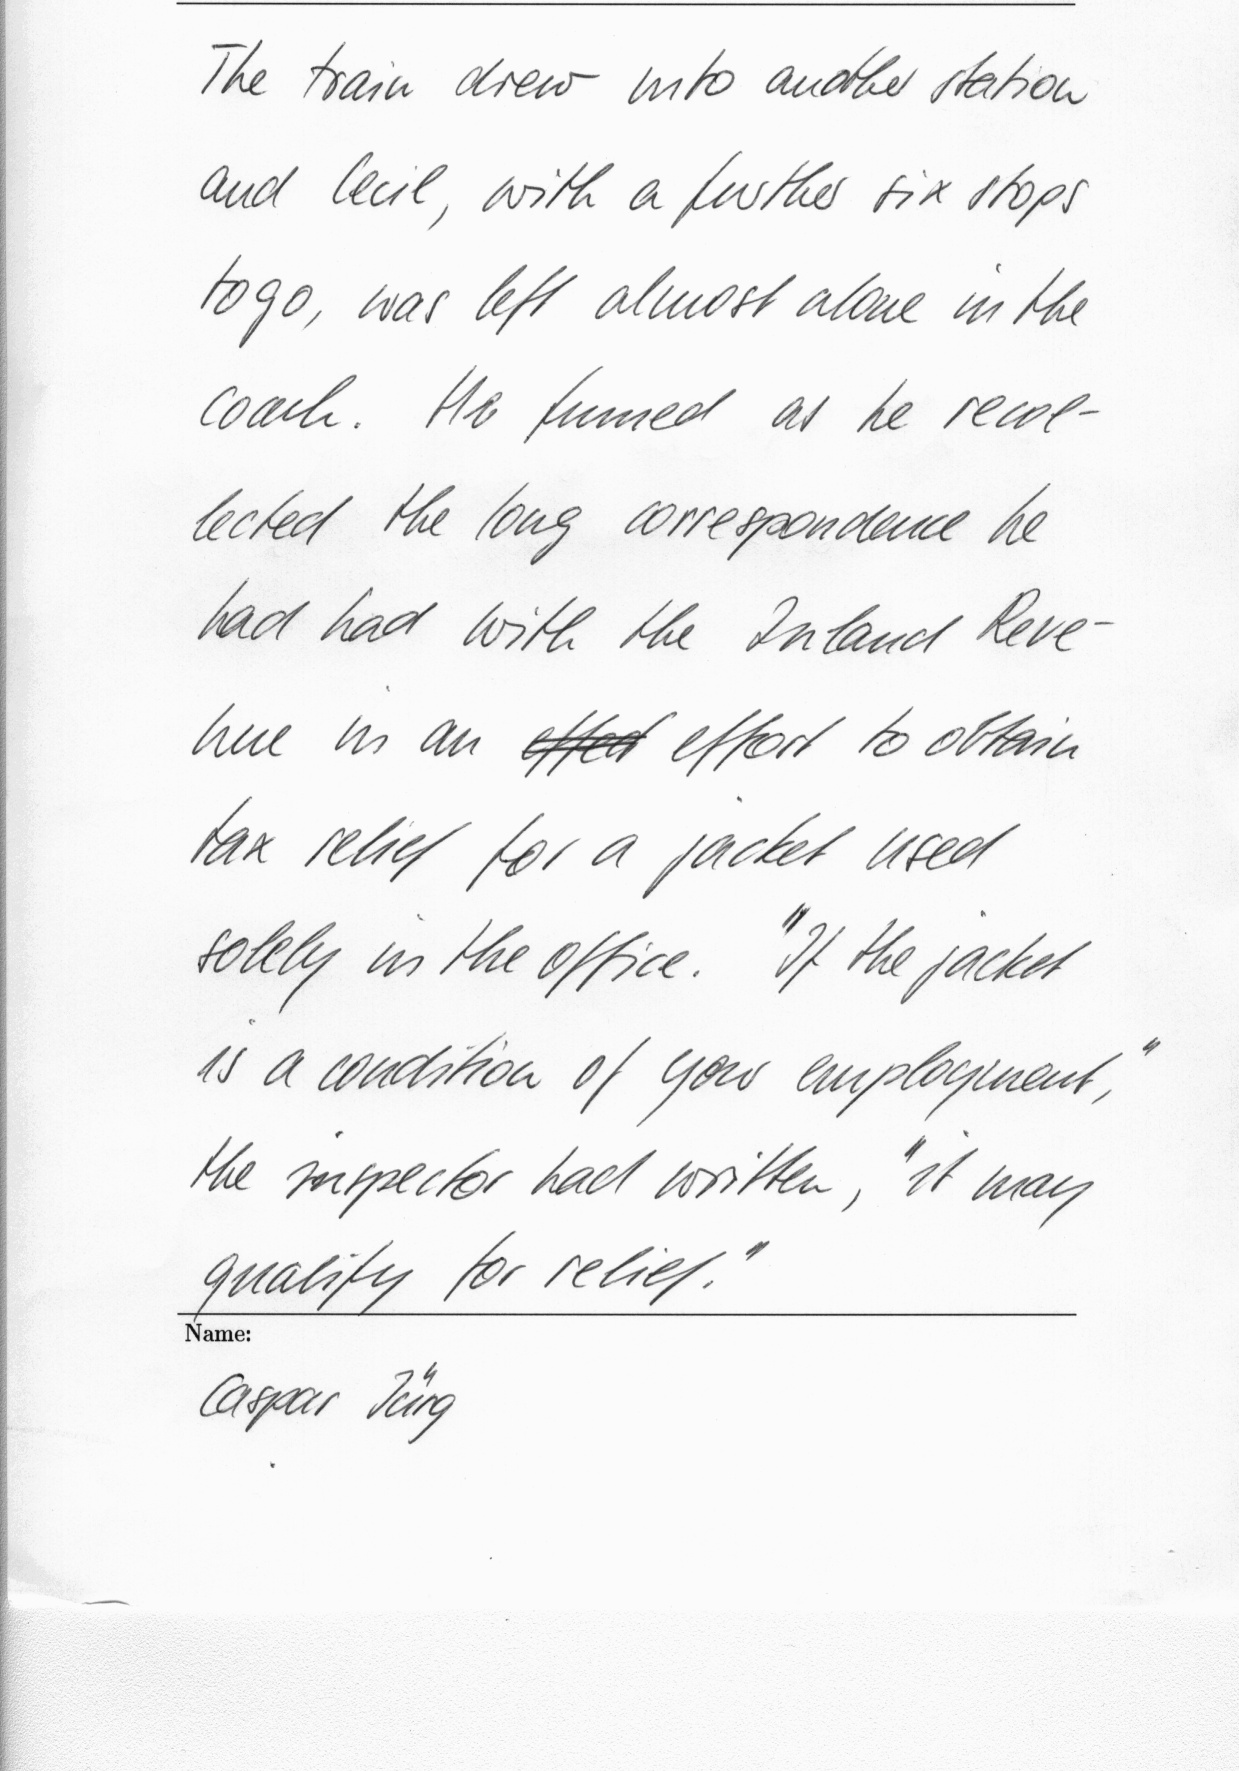 The train drew into another station
and Cecil, with a further six stops
to go, was left almost alone in the
coach. He fumed as he recol-
lected the long correspondence he
had had with the Inland Reve-
nue in an effort to obtain
tax relief for a jacket used
solely in the office. "If the jacket
is a condition of your employment,"
the inspector had written, "it may
qualify for relief."
Name:
Caspar Jürg